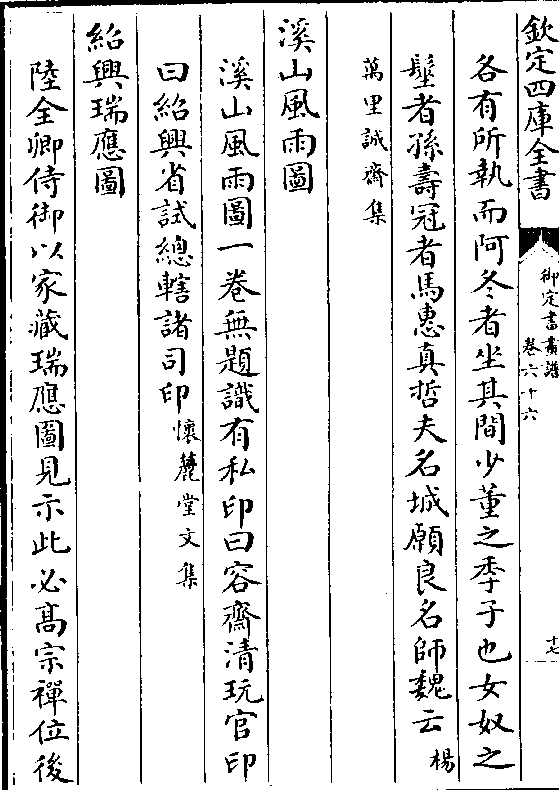 欽定四庫全書
御定書畫譜
卷六十六
十七
各有所執而阿冬者坐其間少董之季子也女奴之
髽者孫壽冠者馬惠真哲夫名城願良名師魏云楊
萬里誠齋集
溪山風雨圖
溪山風雨圖一卷無題識有私印曰容齋清玩官印
曰紹興省試總轄諸司印懷麓堂文集
紹興瑞應圖
陸全卿侍御以家藏瑞應圖見示此必髙宗禪位後